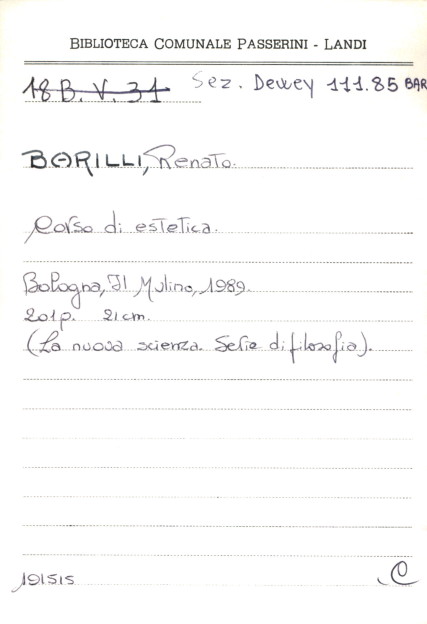 BIBLIOTECA COMUNALE PASSERINI - LANDI
18 B. V. 31 Sez. Dewey 111.85 BAR
BARILLI, Renato.
Corso di estetica.
Bologna, Il Mulino, 1989.
201p. 21cm.
(La nuova scienza. Serie di filosofia).
191515 C